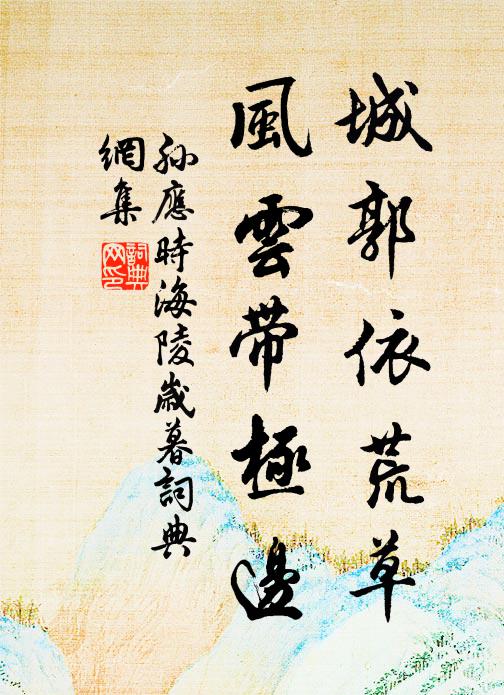 城郭依荒草
風雲帶極邊
孫應時海陵歲暮詞典
網集
詞典
网印